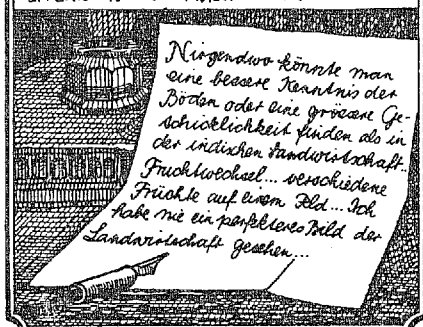 Nirgendwo könnte man
eine bessere Kenntnis der
Böden oder eine grössere Ge-
schicklichkeit finden als in
der indischen Landwirtschaft..
Fruchtwechsel... verschiedene
Früchte auf einem Feld... Ich
habe nie ein perfekteres Bild der
Landwirtschaft gesehen...